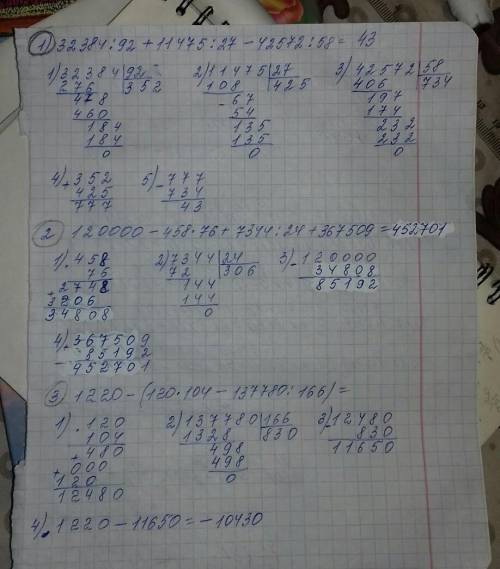 1) 32384:92 + 11475:27 - 42572:58 = 43
1) 32384 | 92 2) 11475 | 27 3) 42572 | 58
276 352 108 425 406 734
478 - 67 197
460 54 174
184 135 232
184 135 232
0 0 0
4) + 352 5) - 777
425 734
777 43
2 120000 - 458·76 + 7344:24 + 367509 = 452701
1) · 458 2) 7344 | 24 3) - 120000
76 72 306 34808
+ 2748 144 85192
3206 144
34808 0
4) + 367509
85192
452701
3 1220 - (120·104 - 137780:166) =
1) · 120 2) 137780 | 166 3) - 12480
104 1328 830 830
+ 480 498 11650
+ 000 498
120 0
12480
4) 1220 - 11650 = - 10430